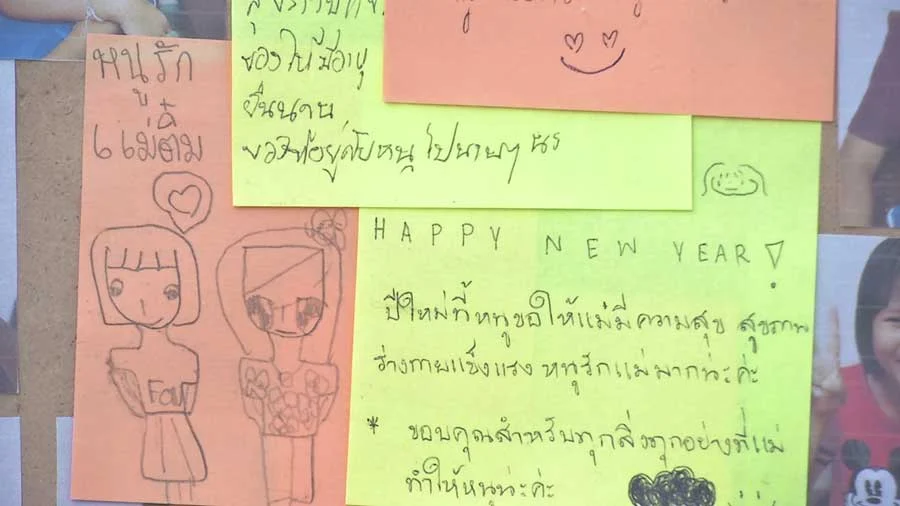 หนูรัก
แม่ติ๋ม
ของให้มีอายุ
ยืนนาน
ขอให้อยู่กับหนูไปนานๆ นะ
FOUR
HAPPY NEW YEAR !
ปีใหม่นี้หนูขอให้แม่มีความสุข สุขภาพ
ร่างกายแข็งแรง หนูรักแม่มากน่ะค่ะ
* ขอบคุณสำหรับทุกสิ่งทุกอย่างที่แม่
ทำให้หนูน่ะค่ะ